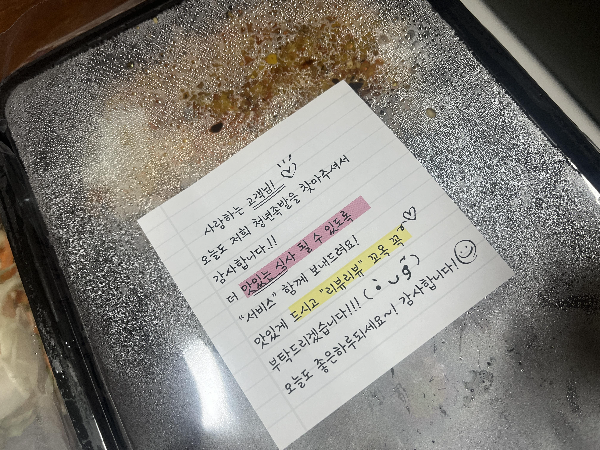 사랑하는 고객님!
오늘도 저희 청년족발을 찾아주셔서
감사합니다!!
더 맛있는 식사 될 수 있도록
"서비스" 함께 보내드려요!
맛있게 드시고 "리뷰리뷰" 꼬옥 꼭
부탁드리겠습니다!!!
오늘도 좋은하루되세요~! 감사합니다!